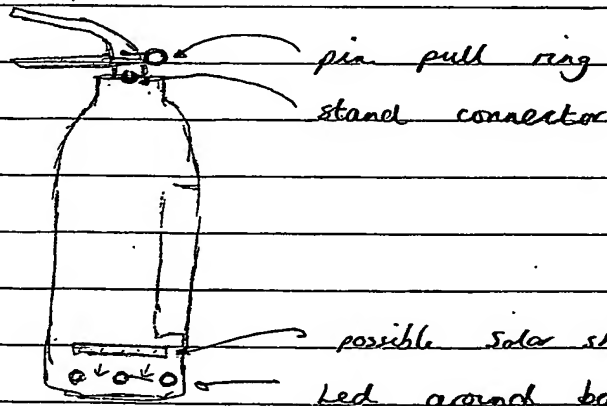 pin pull ring
stand connector
possible solar
Led around